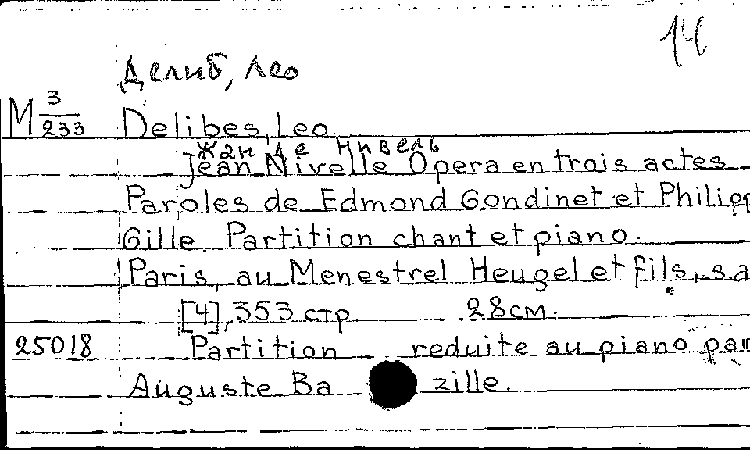 14
Делиб, Лео
M 3/233 Delibes, Leo
Жан де Нивель
Jean Nivelle Opera en trois actes
Paroles de Edmond Gondinet et Philipp
Gille. Partition chant et piano.
Paris, au Menestrel Heugel et fils, s.a
[4], 353 стр 28см.
25018 Partition reduite au piano par
Auguste Ba zille.